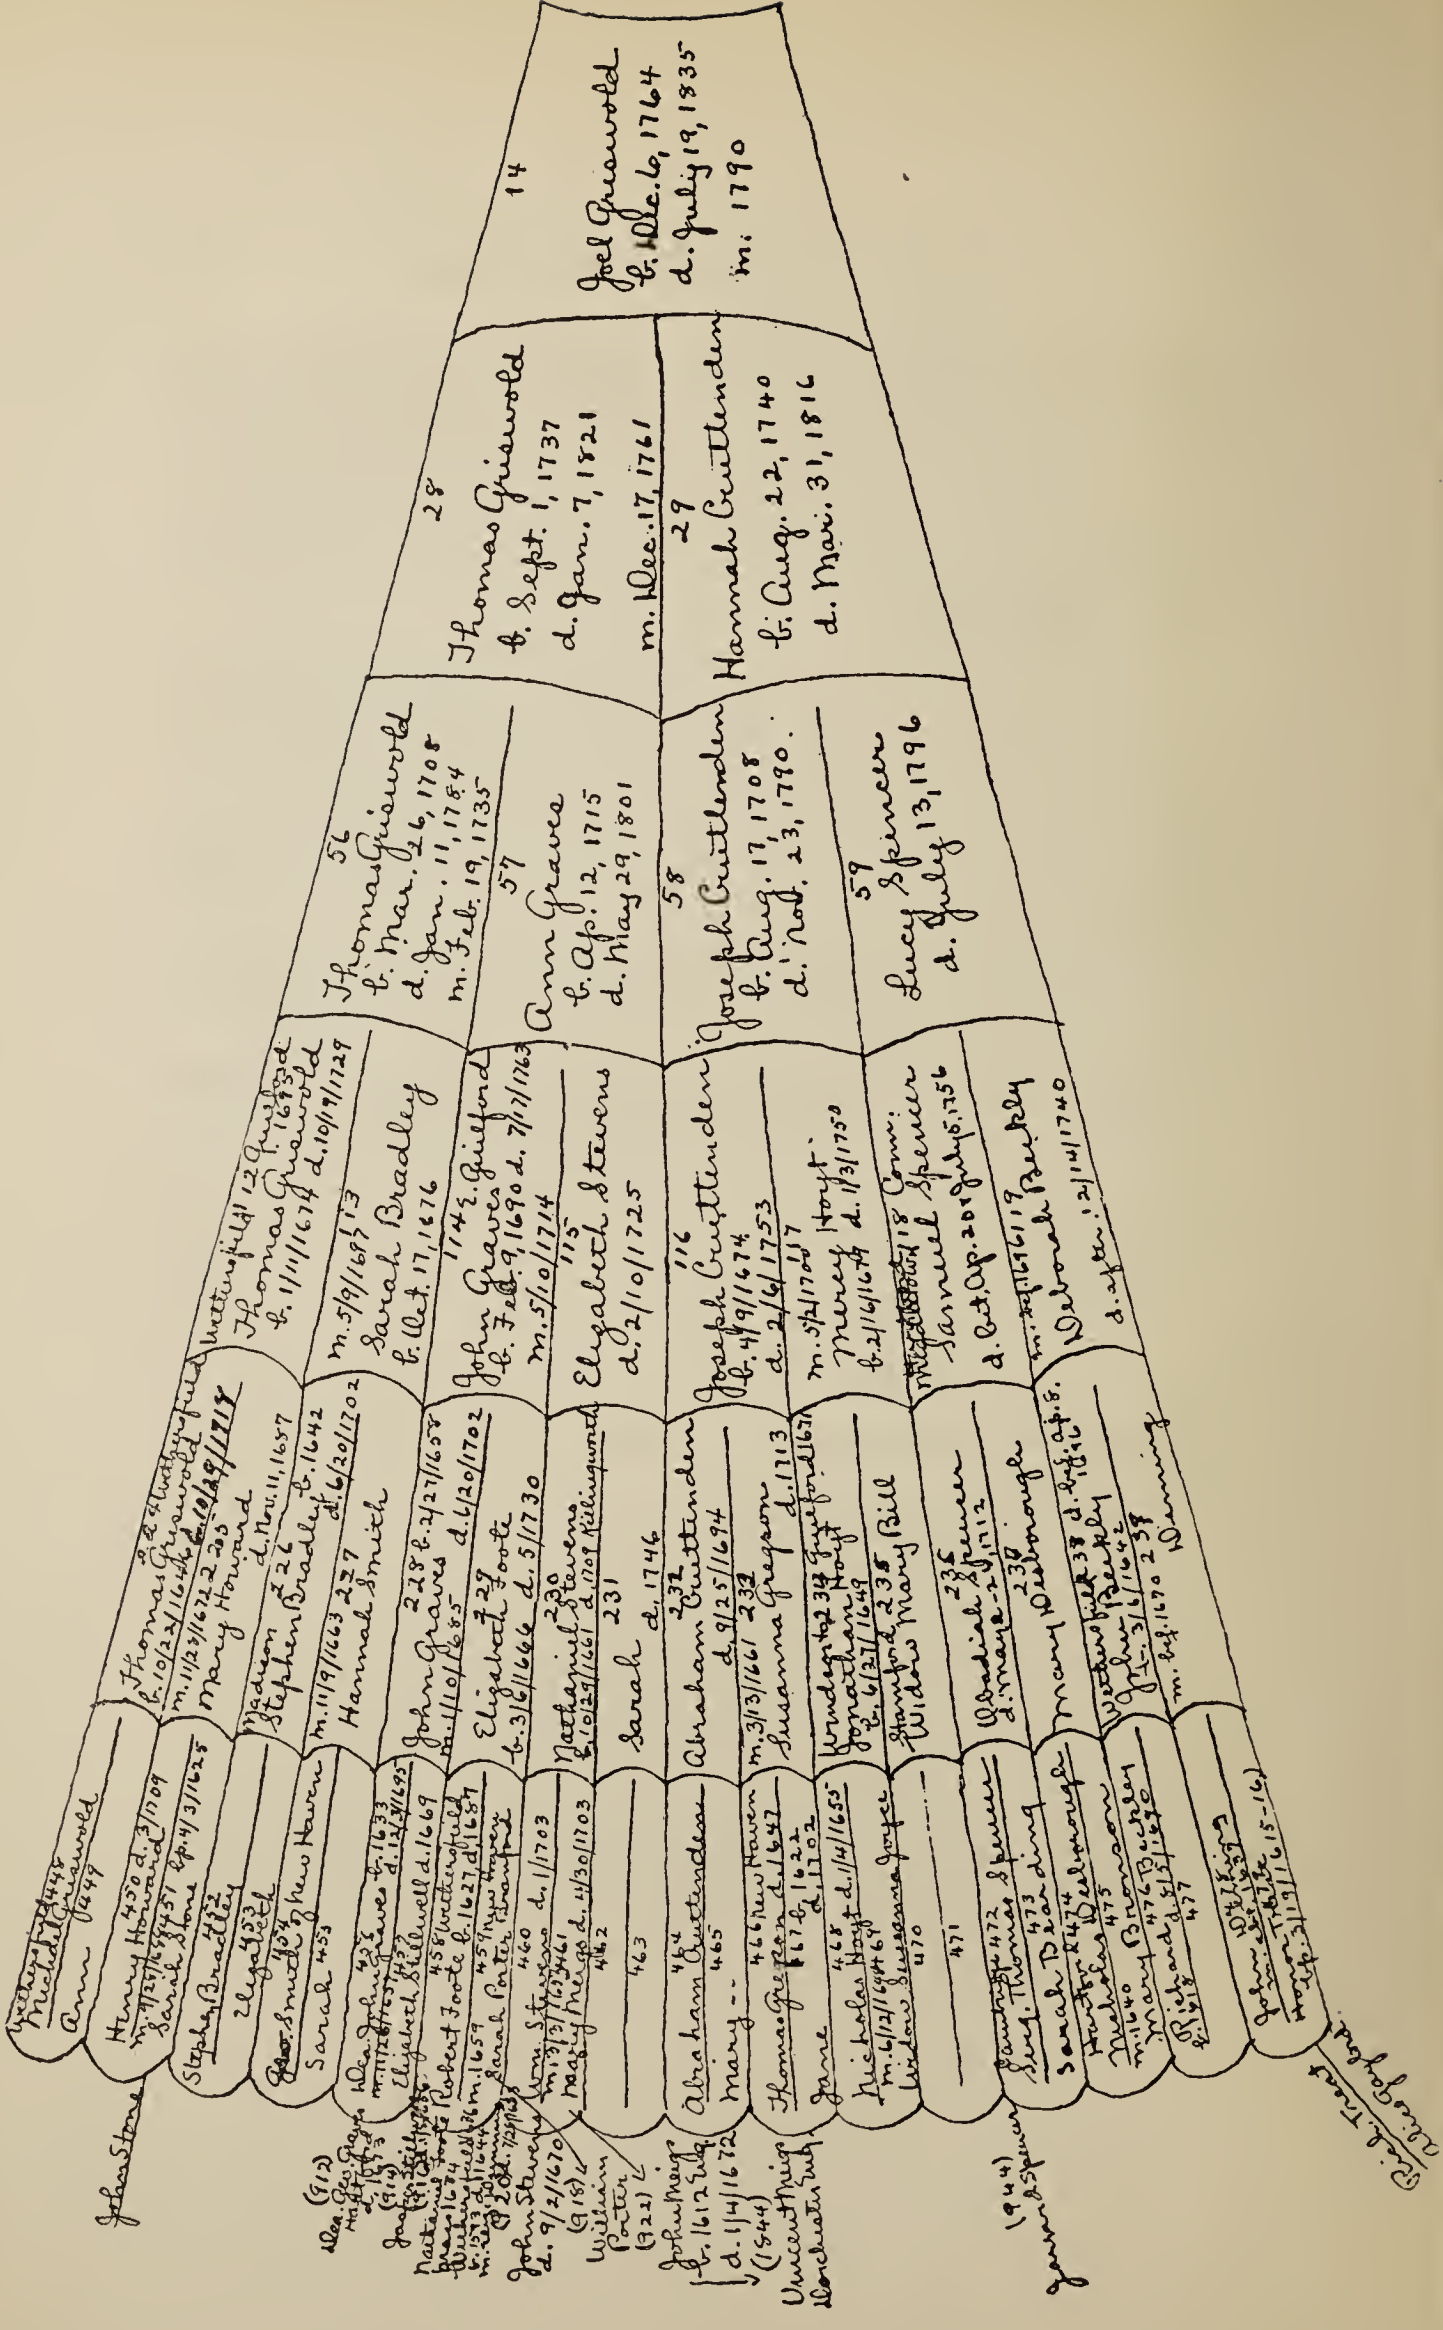 14
Joel Griswold
b. Dec. 6, 1764
d. July 19, 1835
m. 1790
28
Thomas Griswold
b. Sept. 1, 1737
d. Jan. 7, 1821
m. Dec. 17, 1761
29
Hannah Cruttenden
b. Aug. 22, 1740
d. Mar. 31, 1816
56
Thomas Griswold
b. Mar. 26, 1708
d. Jan. 11, 1784
m. Feb. 19, 1735
57
Ann Graves
b. Ap. 12, 1715
d. May 29, 1801
58
Joseph Cruttenden
b. Aug. 17, 1708
d. Nov. 23, 1790.
59
Lucy Spencer
d. July 13, 1796
Wethersfield 112 Guilford
1695
Thomas Griswold
b. 1/11/1674 d. 10/19/1729
m. 5/9/1697 113
Sarah Bradley
b. Oct. 17, 1676
114 E. Guilford
John Graves
b. Feb. 9, 1690 d. 7/17/1763
m. 5/10/1714
115
Elizabeth Stevens
d. 2/10/1725
116
Joseph Cruttenden
b. 4/9/1674
d. 2/6/1753
m. 5/2/1700 117
Mercy Hoyt
b. 2/16/1679 d. 1/3/1750
118 Conn.
Samuel Spencer
d. bet. Ap. 20 & July 5, 1756
119
Deborah Beckly
d. after 12/14/1740
224 Wethersfield
Thomas Griswold
b. 10/22/1646 d. 10/29/1718
m. 11/28/1672 225
Mary Howard
d. Nov. 11, 1687
Madison 226
Stephen Bradley b. 1642
d. 6/20/1702
m. 11/9/1663 227
Hannah Smith
228 b. 2/27/1658
John Graves
d. 6/20/1702
m. 1/10/1685
229
Elizabeth Foote
b. 3/6/1666 d. 5/1730
230
Nathaniel Stevens
b. 10/29/1661 d. 1709 Killingworth
231
Sarah
d. 1746
232
Abraham Cruttenden
d. 9/25/1694
m. 3/13/1661 233
Susanna Gregson
d. 1713
Windsor 234 Guilford 1671
Jonathan Hoyt
b. 6/27/1649
Stamford 235
Widow Mary Bill
236
Obadiah Spencer
d. May 2-24, 1712
237
Mary Desborough
Wethersfield 238 d. bef. Ap. 8. 1696
John Beckly
b. 3/6/1642
m. bef. 1670 239
Denning
Wethersfield 448
Michael Griswold
Ann 449
450 d. 3/1709
Henry Howard
451 bp. 4/3/1625
Sarah Stone
452
Stephen Bradley
453
Elizabeth
454
Geo. Smith of New Haven
Sarah 455
456
Dea. John Graves b. 1633
d. 12/31/1695
457
Elizabeth Stillwell d. 1669
458 Wethersfield
Robert Foote b. 1627 d. 1681
m. 1659 459 New Haven
Sarah Porter Branford
460
Wm. Stevens d. 1/1703
461
Mary Meigs d. 4/30/1703
462
463
464
Abraham Cruttenden
465
Mary --
466 New Haven
Thomas Gregson d. 1647
467 b. 1622
Jane d. 1702
468
Nicholas Hoyt d. 1/4/1655
m. 6/12/1646 469
Widow Susanna Joyce
470
471
472
Sergt. Thomas Spencer
473
Sarah Bearding
Hartford 474
Desborough
Nicholas 475
m. 1640
Mary Bronson
476
Richard Beckley
d. 8/5/1690
477
478
John Denning
479
Honor Treat
bp. 3/19/1615-16
John Stone
(912)
Dea. Geo. Graves
Hartford
d. 1673
(914)
Jasper Stillwell
Nathaniel Foote
John Stevens
d. 9/2/1670
(918)
William
Porter
(922)
John Meigs
b. 1612 Eng.
d. 1/4/1672
(1844)
Vincent Meigs
Dorchester Eng.
(944)
Jarrard Spencer
Rich. Treat
Alice Gaylord